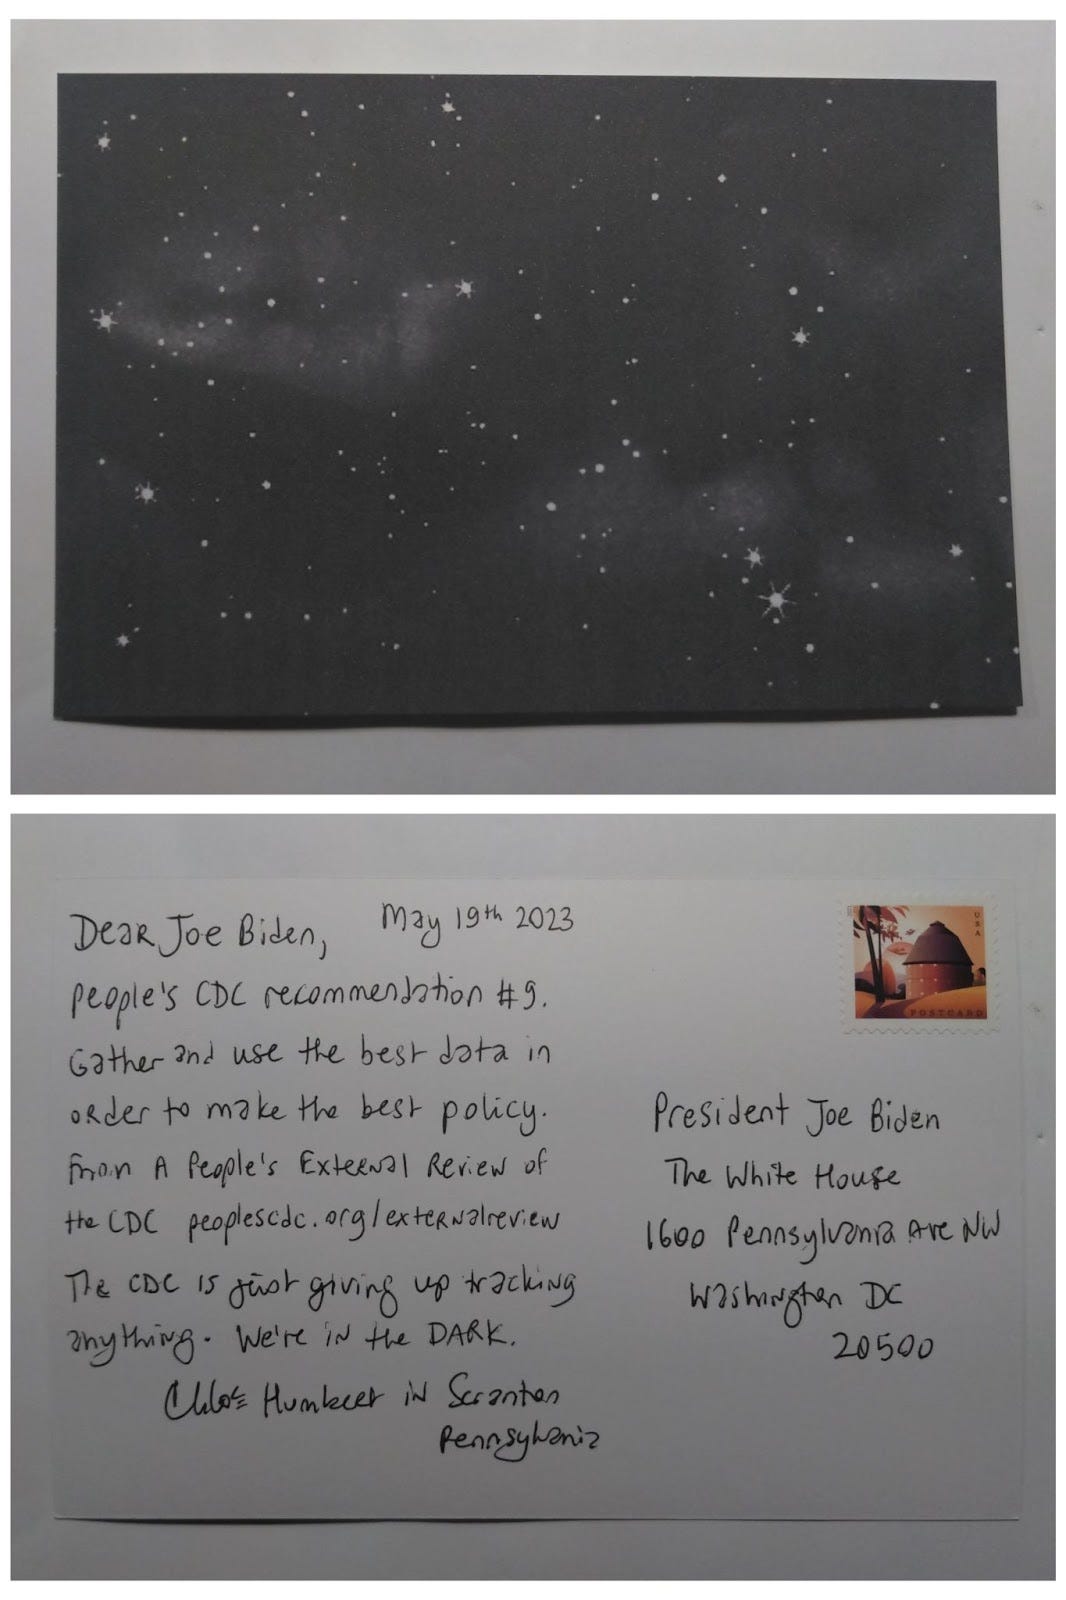 Dear Joe Biden,
May 19th 2023
People's CDC recommendation #9.
Gather and use the best data in
order to make the best policy.
From A People's External Review of
the CDC peoplescdc.org/externalreview
The CDC is just giving up tracking
anything. We're in the DARK.
Chloe Humbert in Scranton
Pennsylvania
USA
POSTCARD
President Joe Biden
The White House
1600 Pennsylvania Ave NW
Washington DC
20500